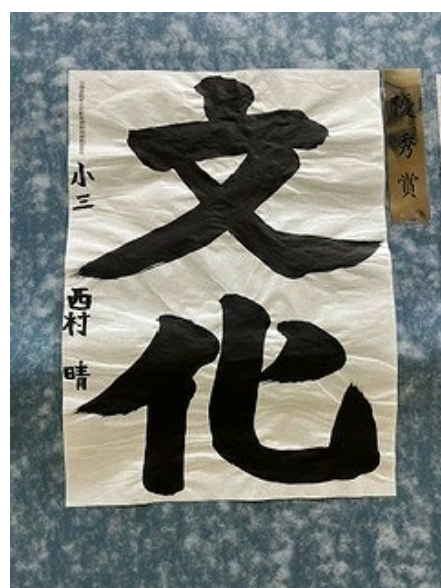 優秀賞
文化
小三
西村 晴